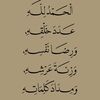 الحمدلله
عدد خلقه
ورضا نفسه
وزنة عرشه
ومداد كلماته